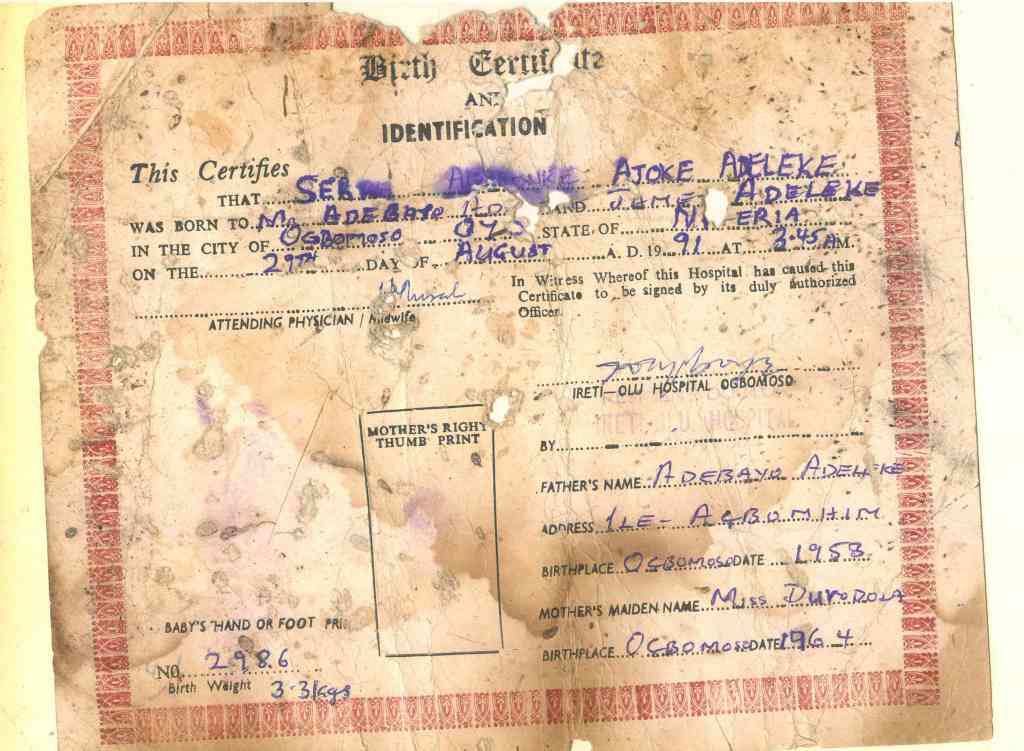 Birth Certif te
AN
IDENTIFICATION
This Certifies
THAT AJOKE ADELEKE
WAS BORN TO Mr. ADEBAYO AND ADELEKE
IN THE CITY OF OGBOMOSO OYO STATE OF NI ERIA
ON THE 29TH DAY OF AUGUST A. D. 19 91 AT 3.45 AM.
In Witness Whereof this Hospital has caused this
Certificate to be signed by its duly authorized
Officer.
ATTENDING PHYSICIAN / Midwife
IRETI-OLU HOSPITAL OGBOMOSO
IRETI-OLU HOSPITAL
MOTHER'S RIGHT
THUMB PRINT
BY
FATHER'S NAME ADEBAYO ADELEKE
ADDRESS ILE-
BIRTHPLACE OGBOMOSO DATE 1958
MOTHER'S MAIDEN NAME Miss DURODOLA
BIRTHPLACE OGBOMOSO DATE 1964
BABY'S HAND OR FOOT PRI
NO. 2986
Birth Weight 3.3kgs